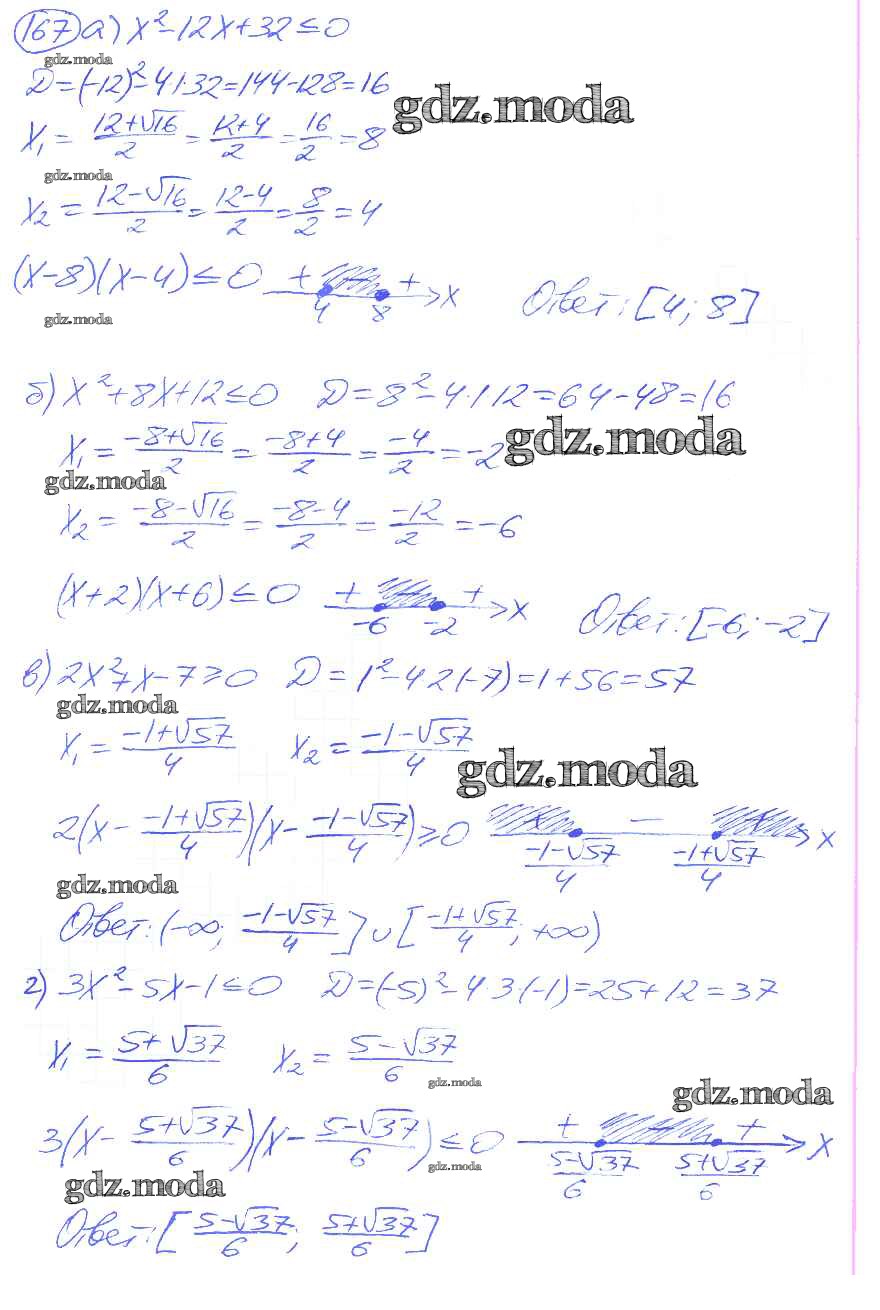 167 а) x²-12x+32≤0
gdz.moda
Д=(-12)²-4·1·32=144-128=16
gdz.moda
x₁=(12+√16)/2=(12+4)/2=16/2=8
gdz.moda
x₂=(12-√16)/2=(12-4)/2=8/2=4
(x-8)(x-4)≤0 + + 4 8 x Ответ: [4; 8]
gdz.moda
б) x²+8x+12≤0 Д=8²-4·1·12=64-48=16
x₁=(-8+√16)/2=(-8+4)/2=-4/2=-2
gdz.moda
gdz.moda
x₂=(-8-√16)/2=(-8-4)/2=-12/2=-6
(x+2)(x+6)≤0 + + -6 -2 x Ответ: [-6; -2]
в) 2x²+x-7≥0 Д=1²-4 2(-7)=1+56=57
gdz.moda
x₁=(-1+√57)/4 x₂=(-1-√57)/4
gdz.moda
2(x-(-1+√57)/4)(x-(-1-√57)/4)≥0 + - + (-1-√57)/4 (-1+√57)/4 x
gdz.moda
Ответ: (-∞; (-1-√57)/4]∪[(-1+√57)/4; +∞)
г) 3x²-5x-1≤0 Д=(-5)²-4 3·(-1)=25+12=37
x₁=(5+√37)/6 x₂=(5-√37)/6
gdz.moda
gdz.moda
3(x-(5+√37)/6)(x-(5-√37)/6)≤0 + + (5-√37)/6 (5+√37)/6 x
gdz.moda
gdz.moda
Ответ: [(5-√37)/6; (5+√37)/6]